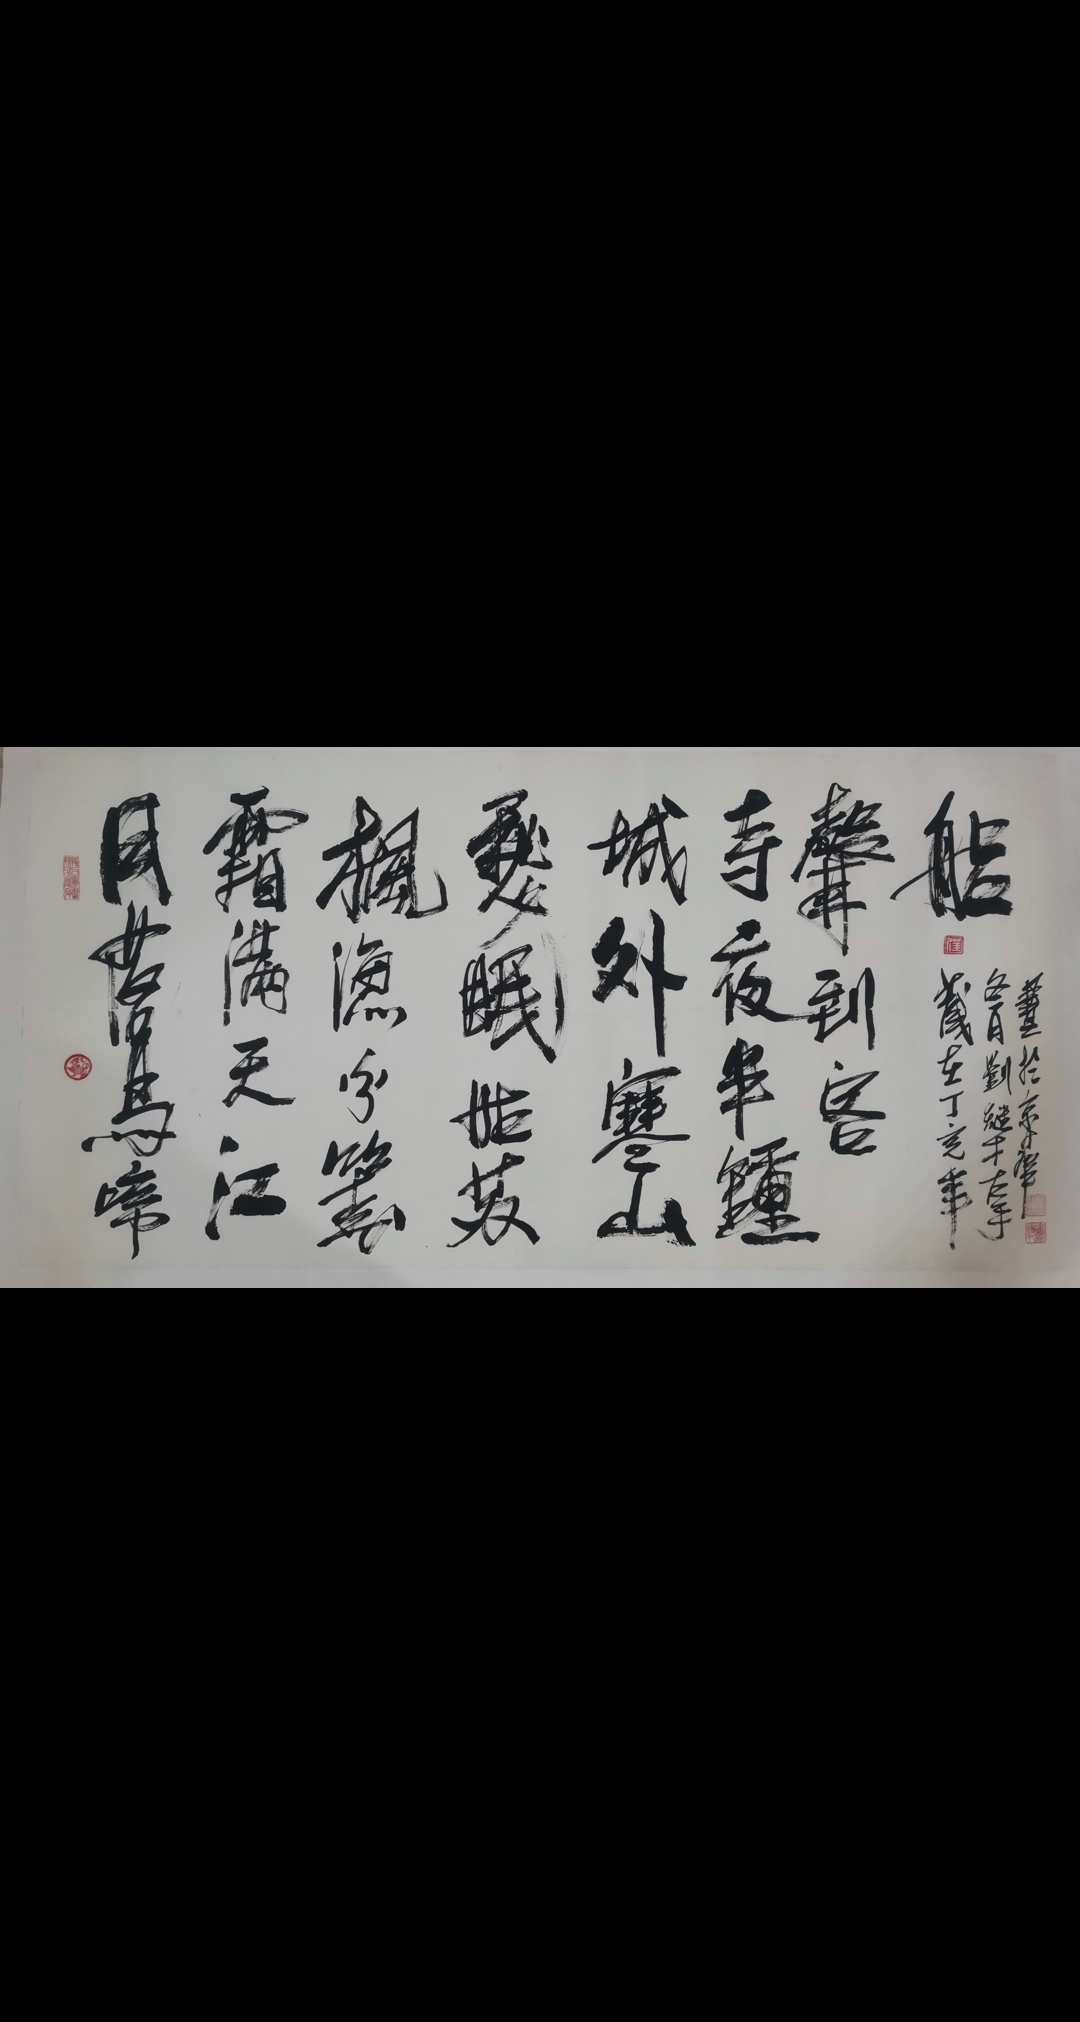 月落烏啼
霜滿天江
楓漁火對
愁眠姑苏
城外寒山
寺夜半鐘
聲到客
船
歲在丁亥年
冬月劉繼才左手
書於京華